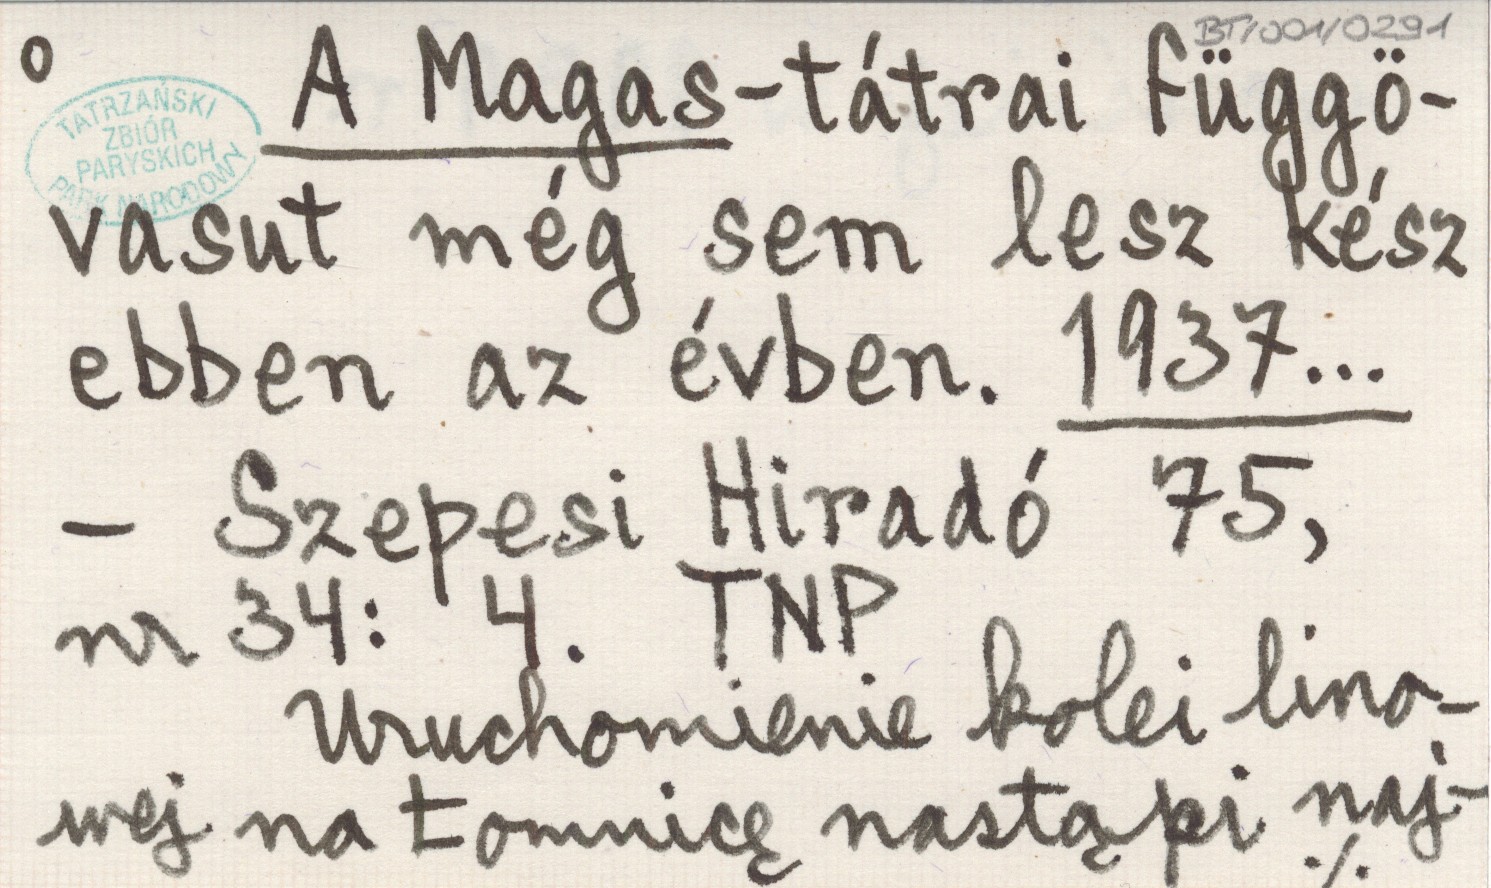 BT/001/0291
o A Magas-tátrai függö-
TATRZAŃSKI
ZBIÓR
PARYSKICH
PARK NARODOWY
vasut még sem lesz kész
ebben az évben. 1937...
- Szepesi Hiradó 75,
nr 34: 4. TNP
Uruchomienie kolei lino-
wej na Łomnicę nastąpi naj-
./.